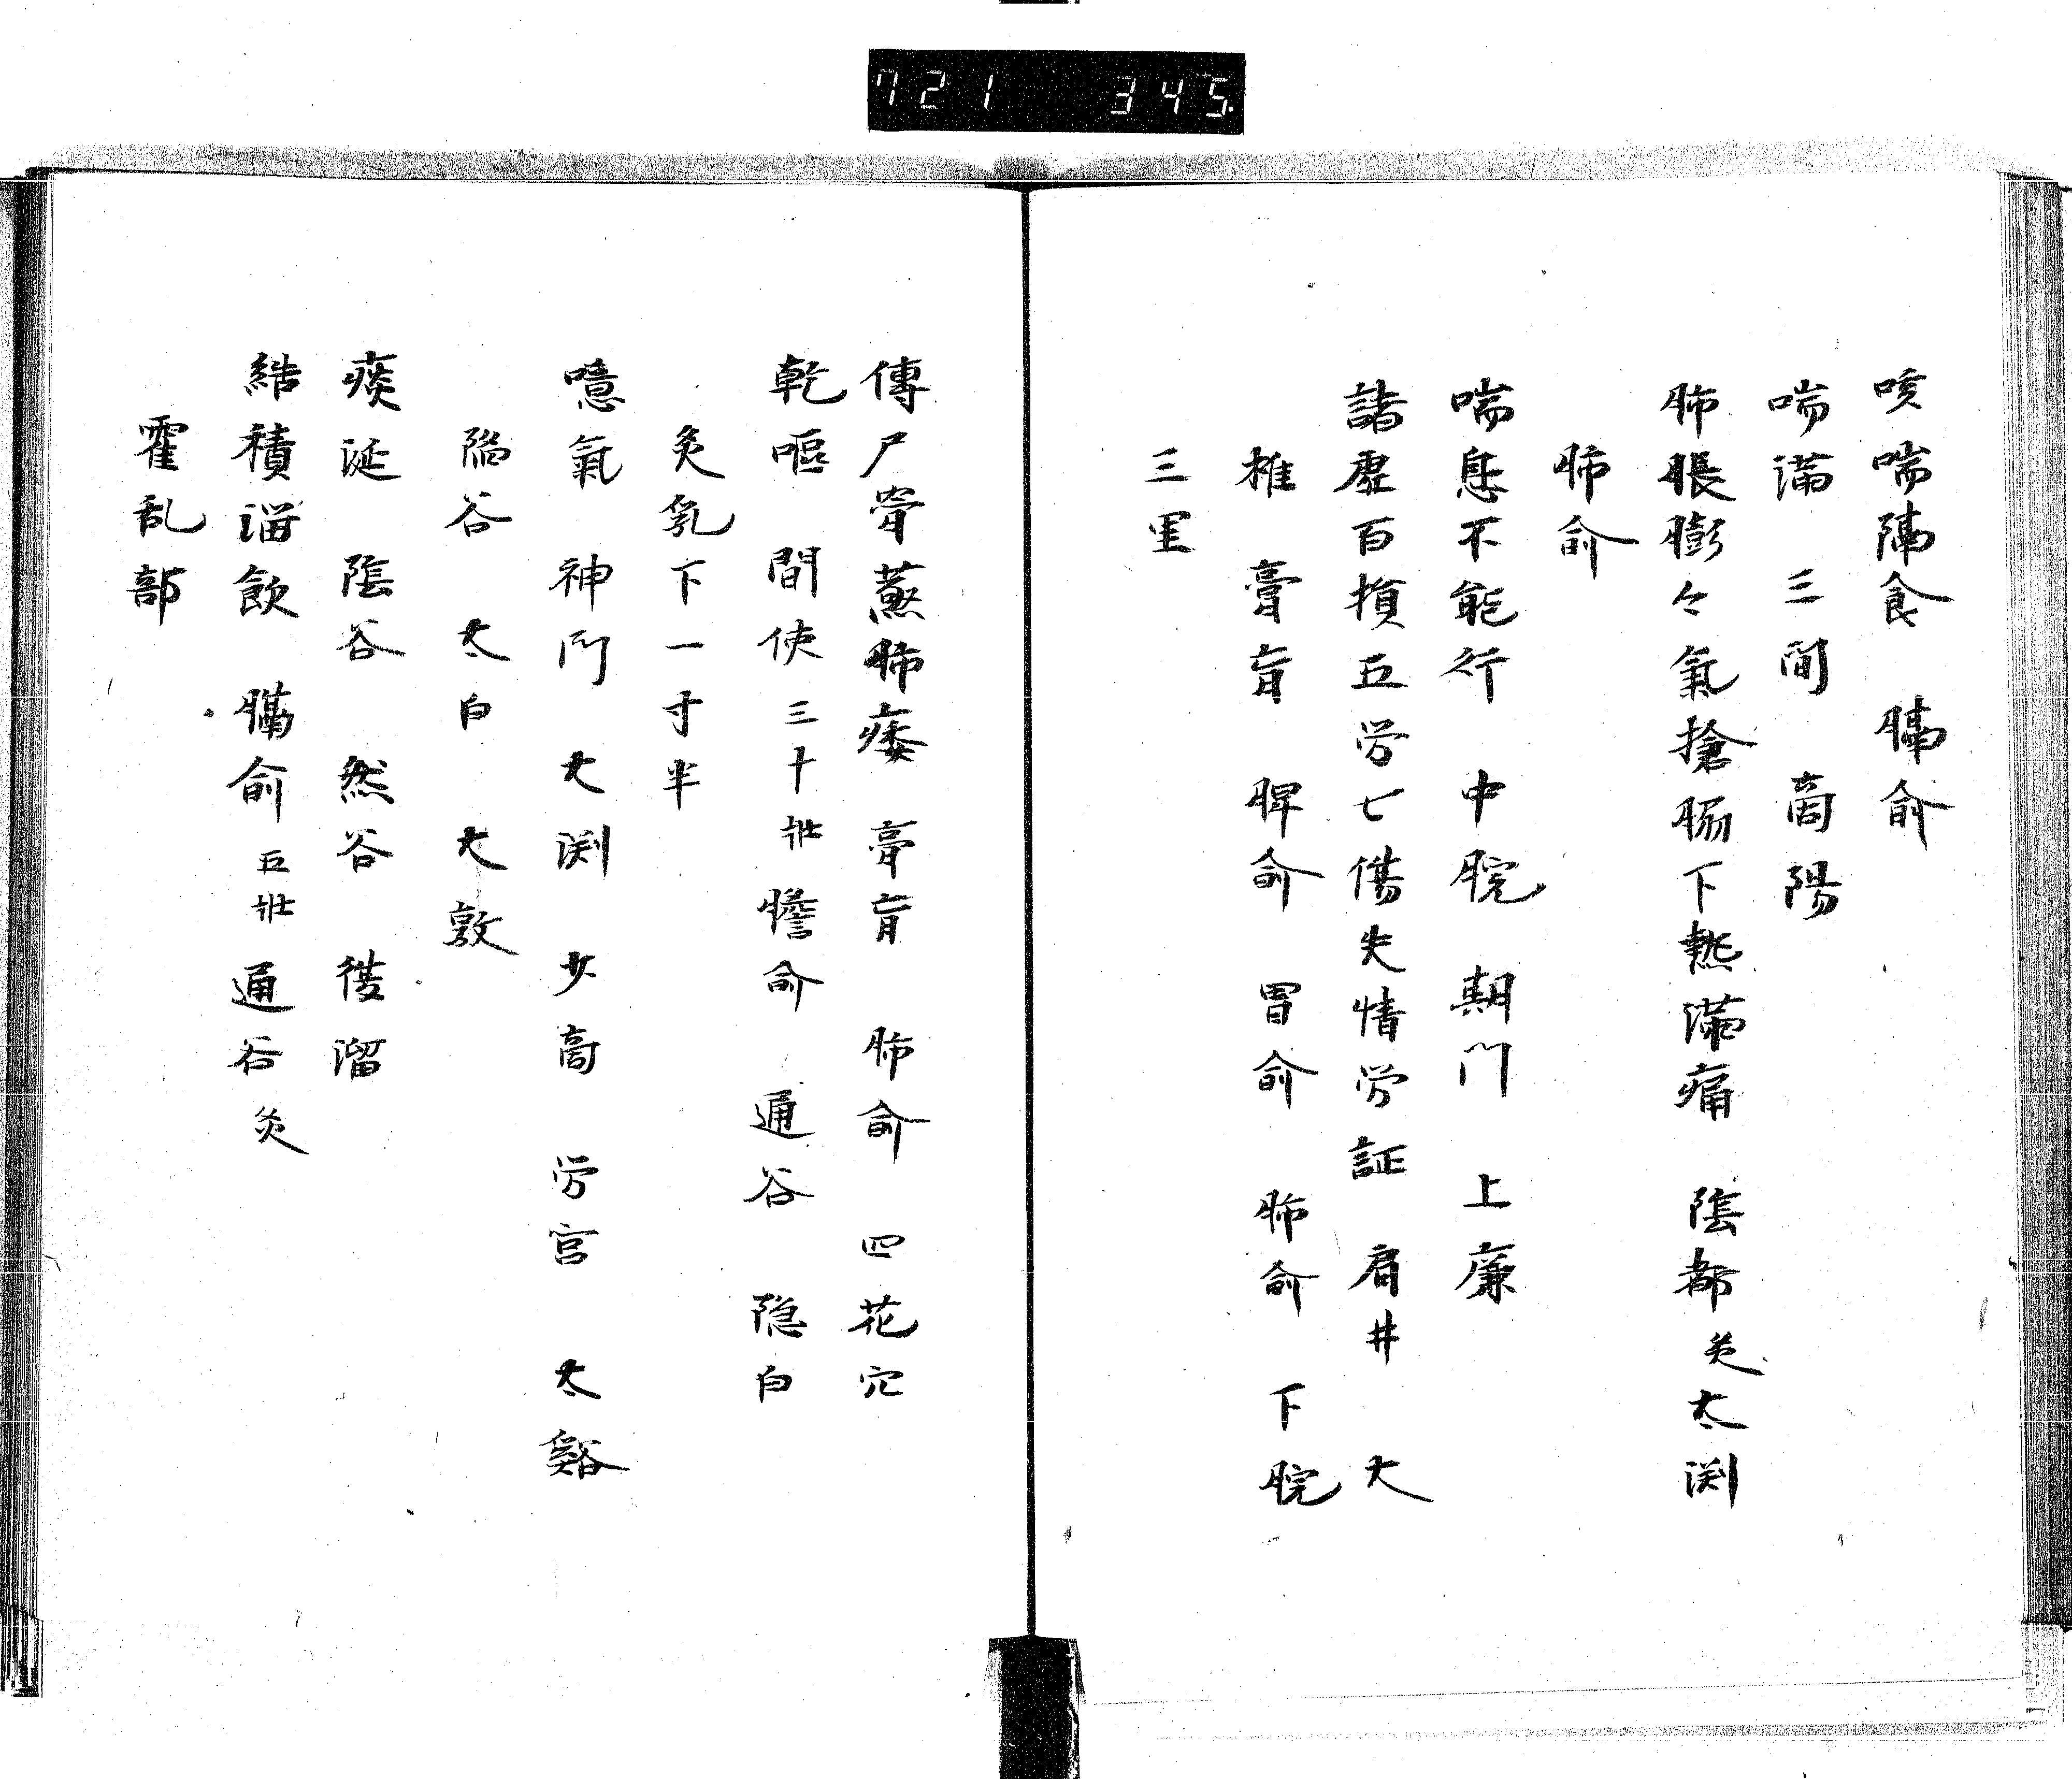 721 345
咳喘隔食 膈俞
喘滿 三間 商陽
肺脹膨々氣搶腸下熱滿痛 陰都灸太渕
肺俞
喘息不能行 中脘 期門 上廉
諸虛百損五労七傷失情労証 肩井 大
椎 膏肓 脾俞 胃俞 肺俞 下脘
三里
傳尸骨蒸肺痿 膏肓 肺俞 四花穴
乾嘔 間使三十壯 膽俞 通谷 隱白
灸乳下一寸半
噫氣 神門 大渕 少商 労宮 太谿
陷谷 太白 大敦
痰涎 陰谷 然谷 復溜
結積溜飲 膈俞五壯 通谷灸
霍乱部